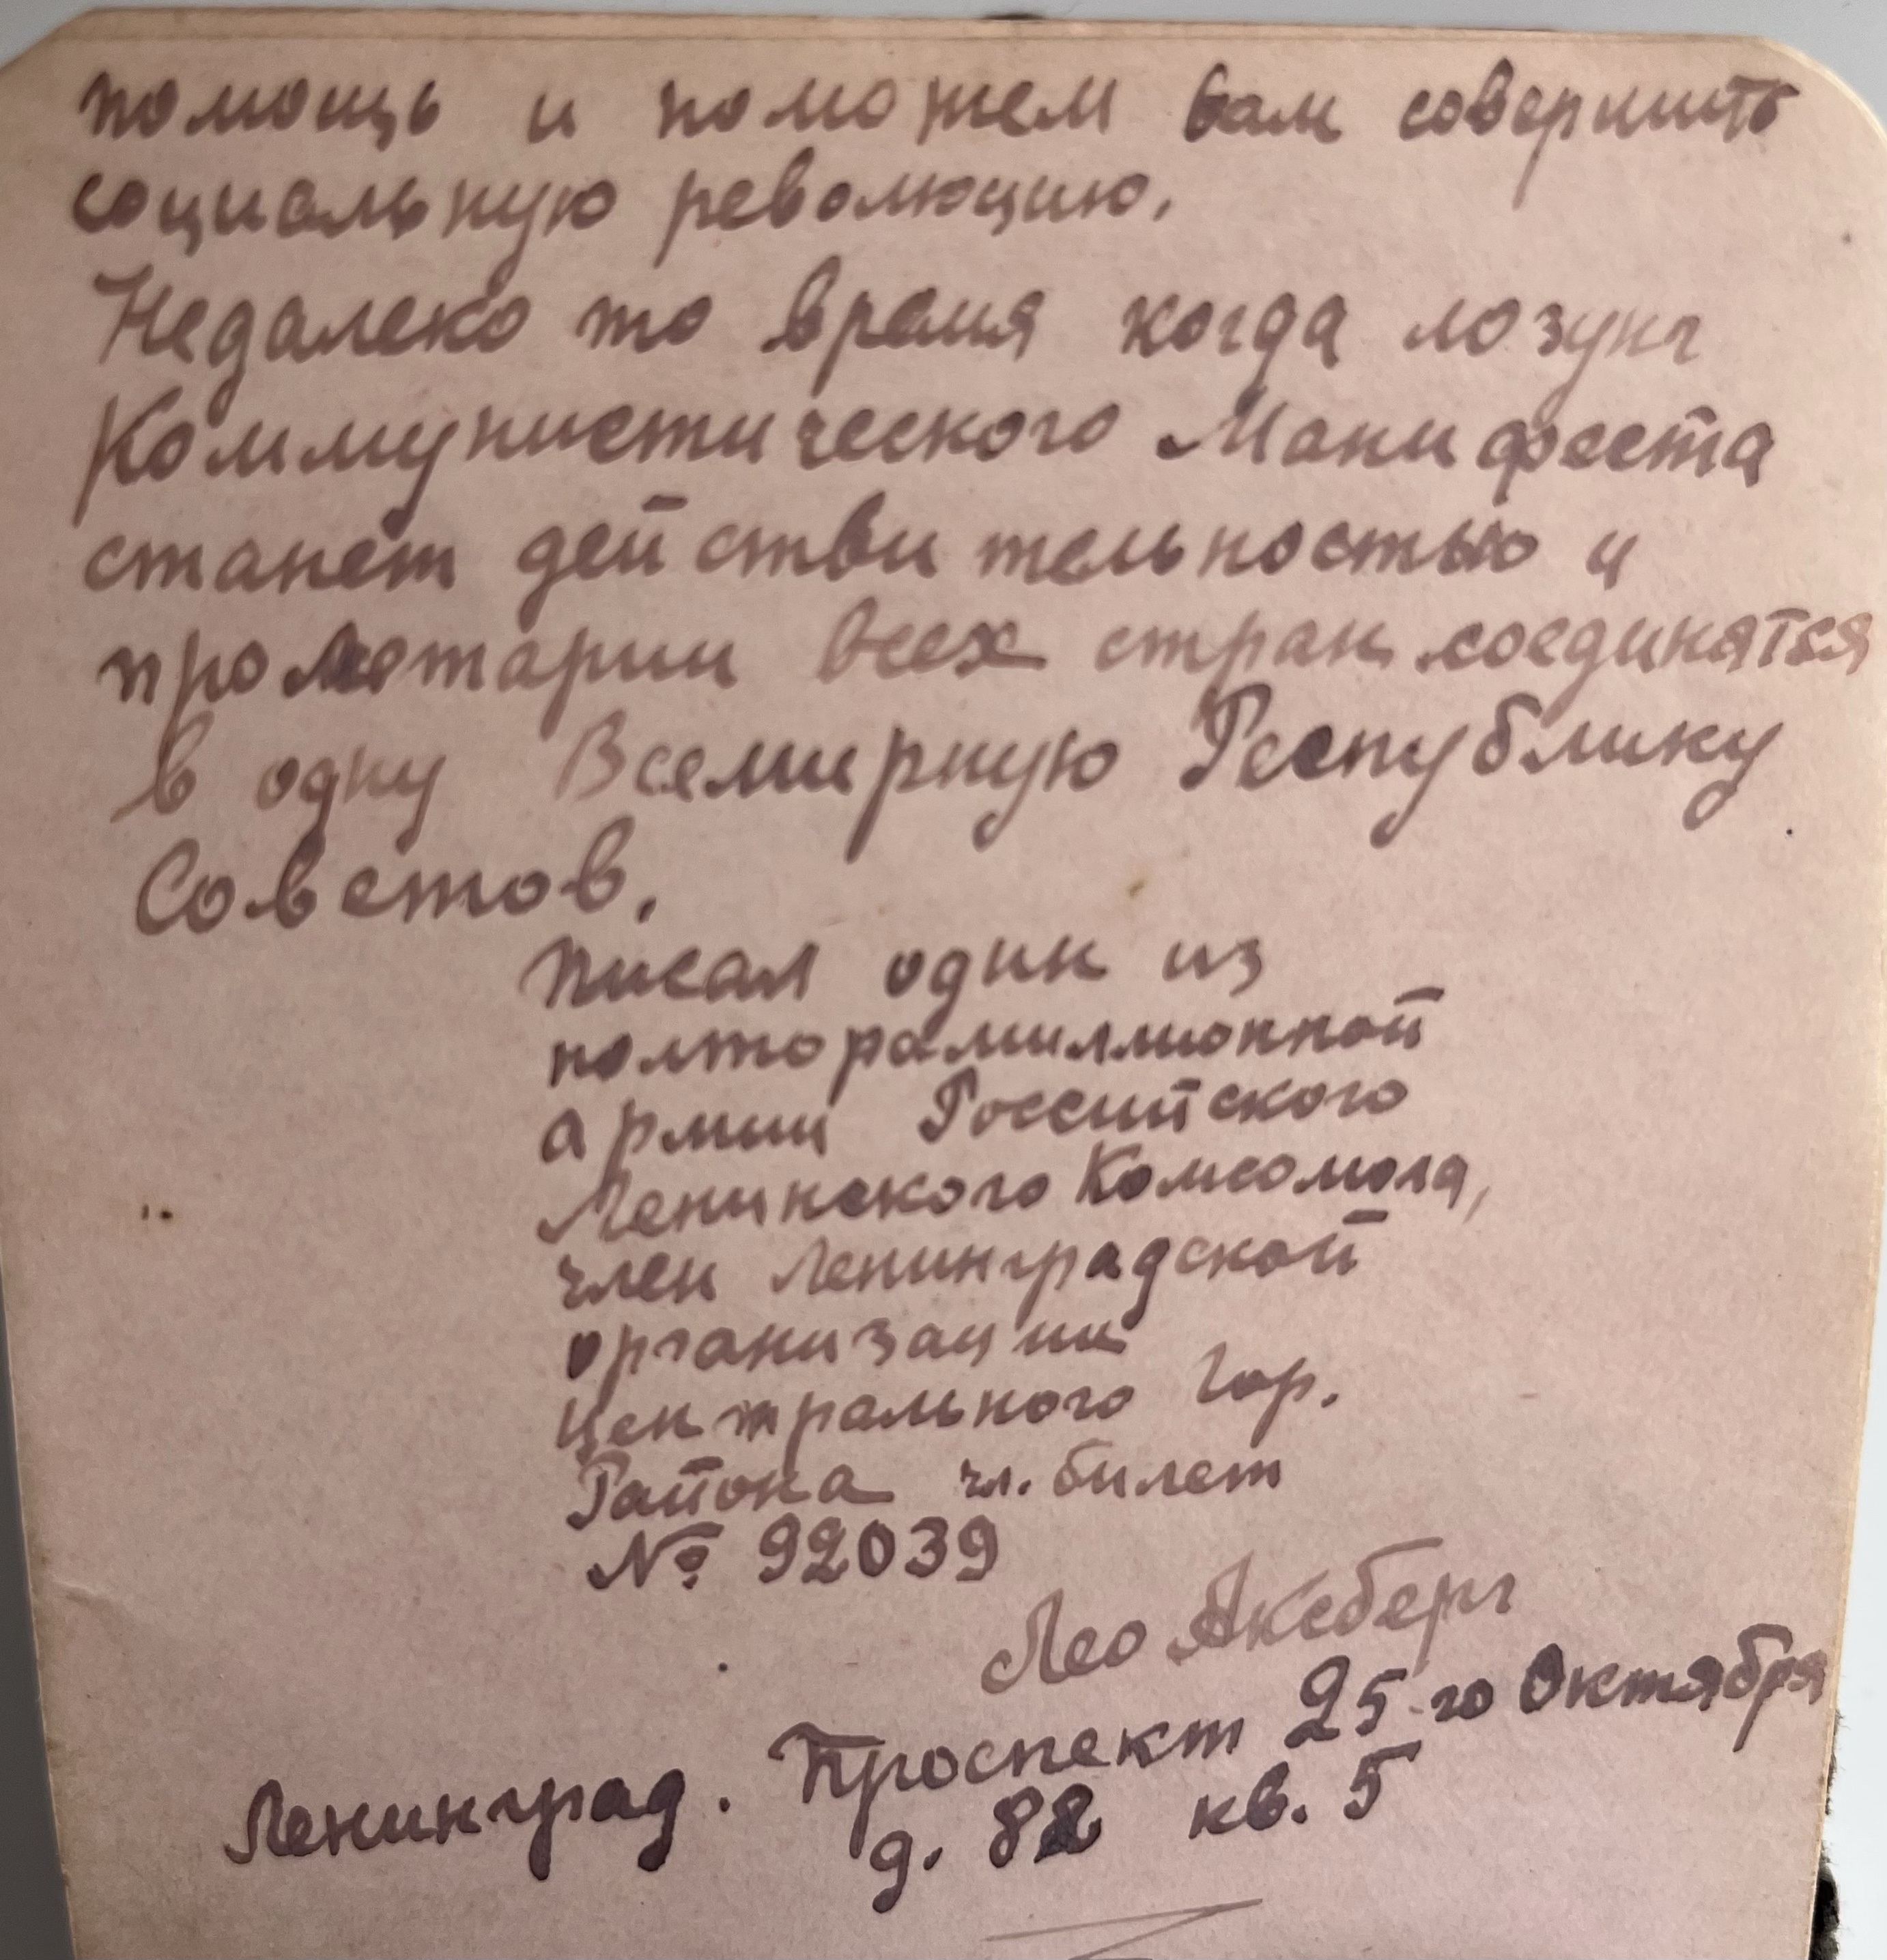 помощь и поможем вам совершить
социальную революцию.
Недалеко то время когда лозунг
Коммунистического Манифеста
станет действительностью и
пролетарии всех стран соединятся
в одну Всемирную Республику
Советов.
Писал один из
полторамиллионной
армии Российского
Ленинского Комсомола,
член Ленинградской
организации
Центрального Гор.
Района чл. билет
№ 92039
Лео Аксберг
Ленинград. Проспект 25-го Октября
д. 82 кв. 5